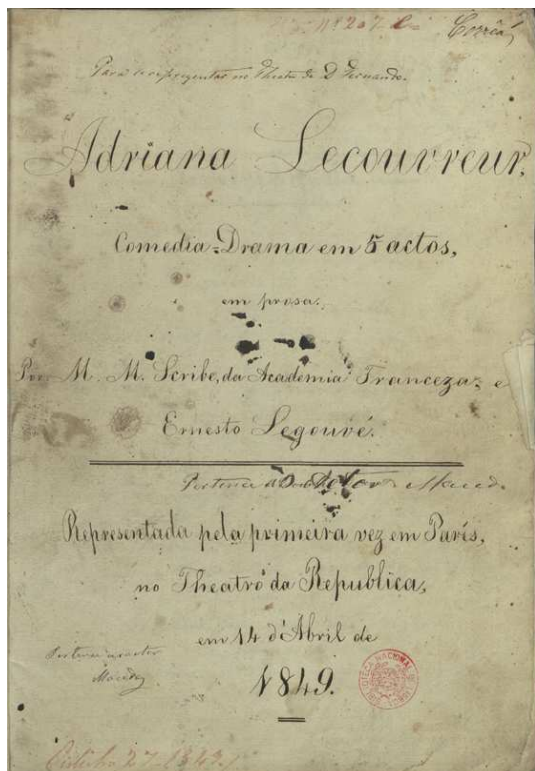 Nº 207
Corrêa
Para se representar no Theatro de D. Fernando.
Adriana Lecouvreur,
Comedia=Drama em 5 actos,
em prosa.
Por M. M. Scribe, da Academia Franceza, e
Ernesto Legouvé.
Pertence Actor Maced
Representada pela primeira vez em París,
no Theatro da Republica,
em 14 d'Abril de
1849.
Pertence actor
Macedo
BIBLIOTECA NACIONAL